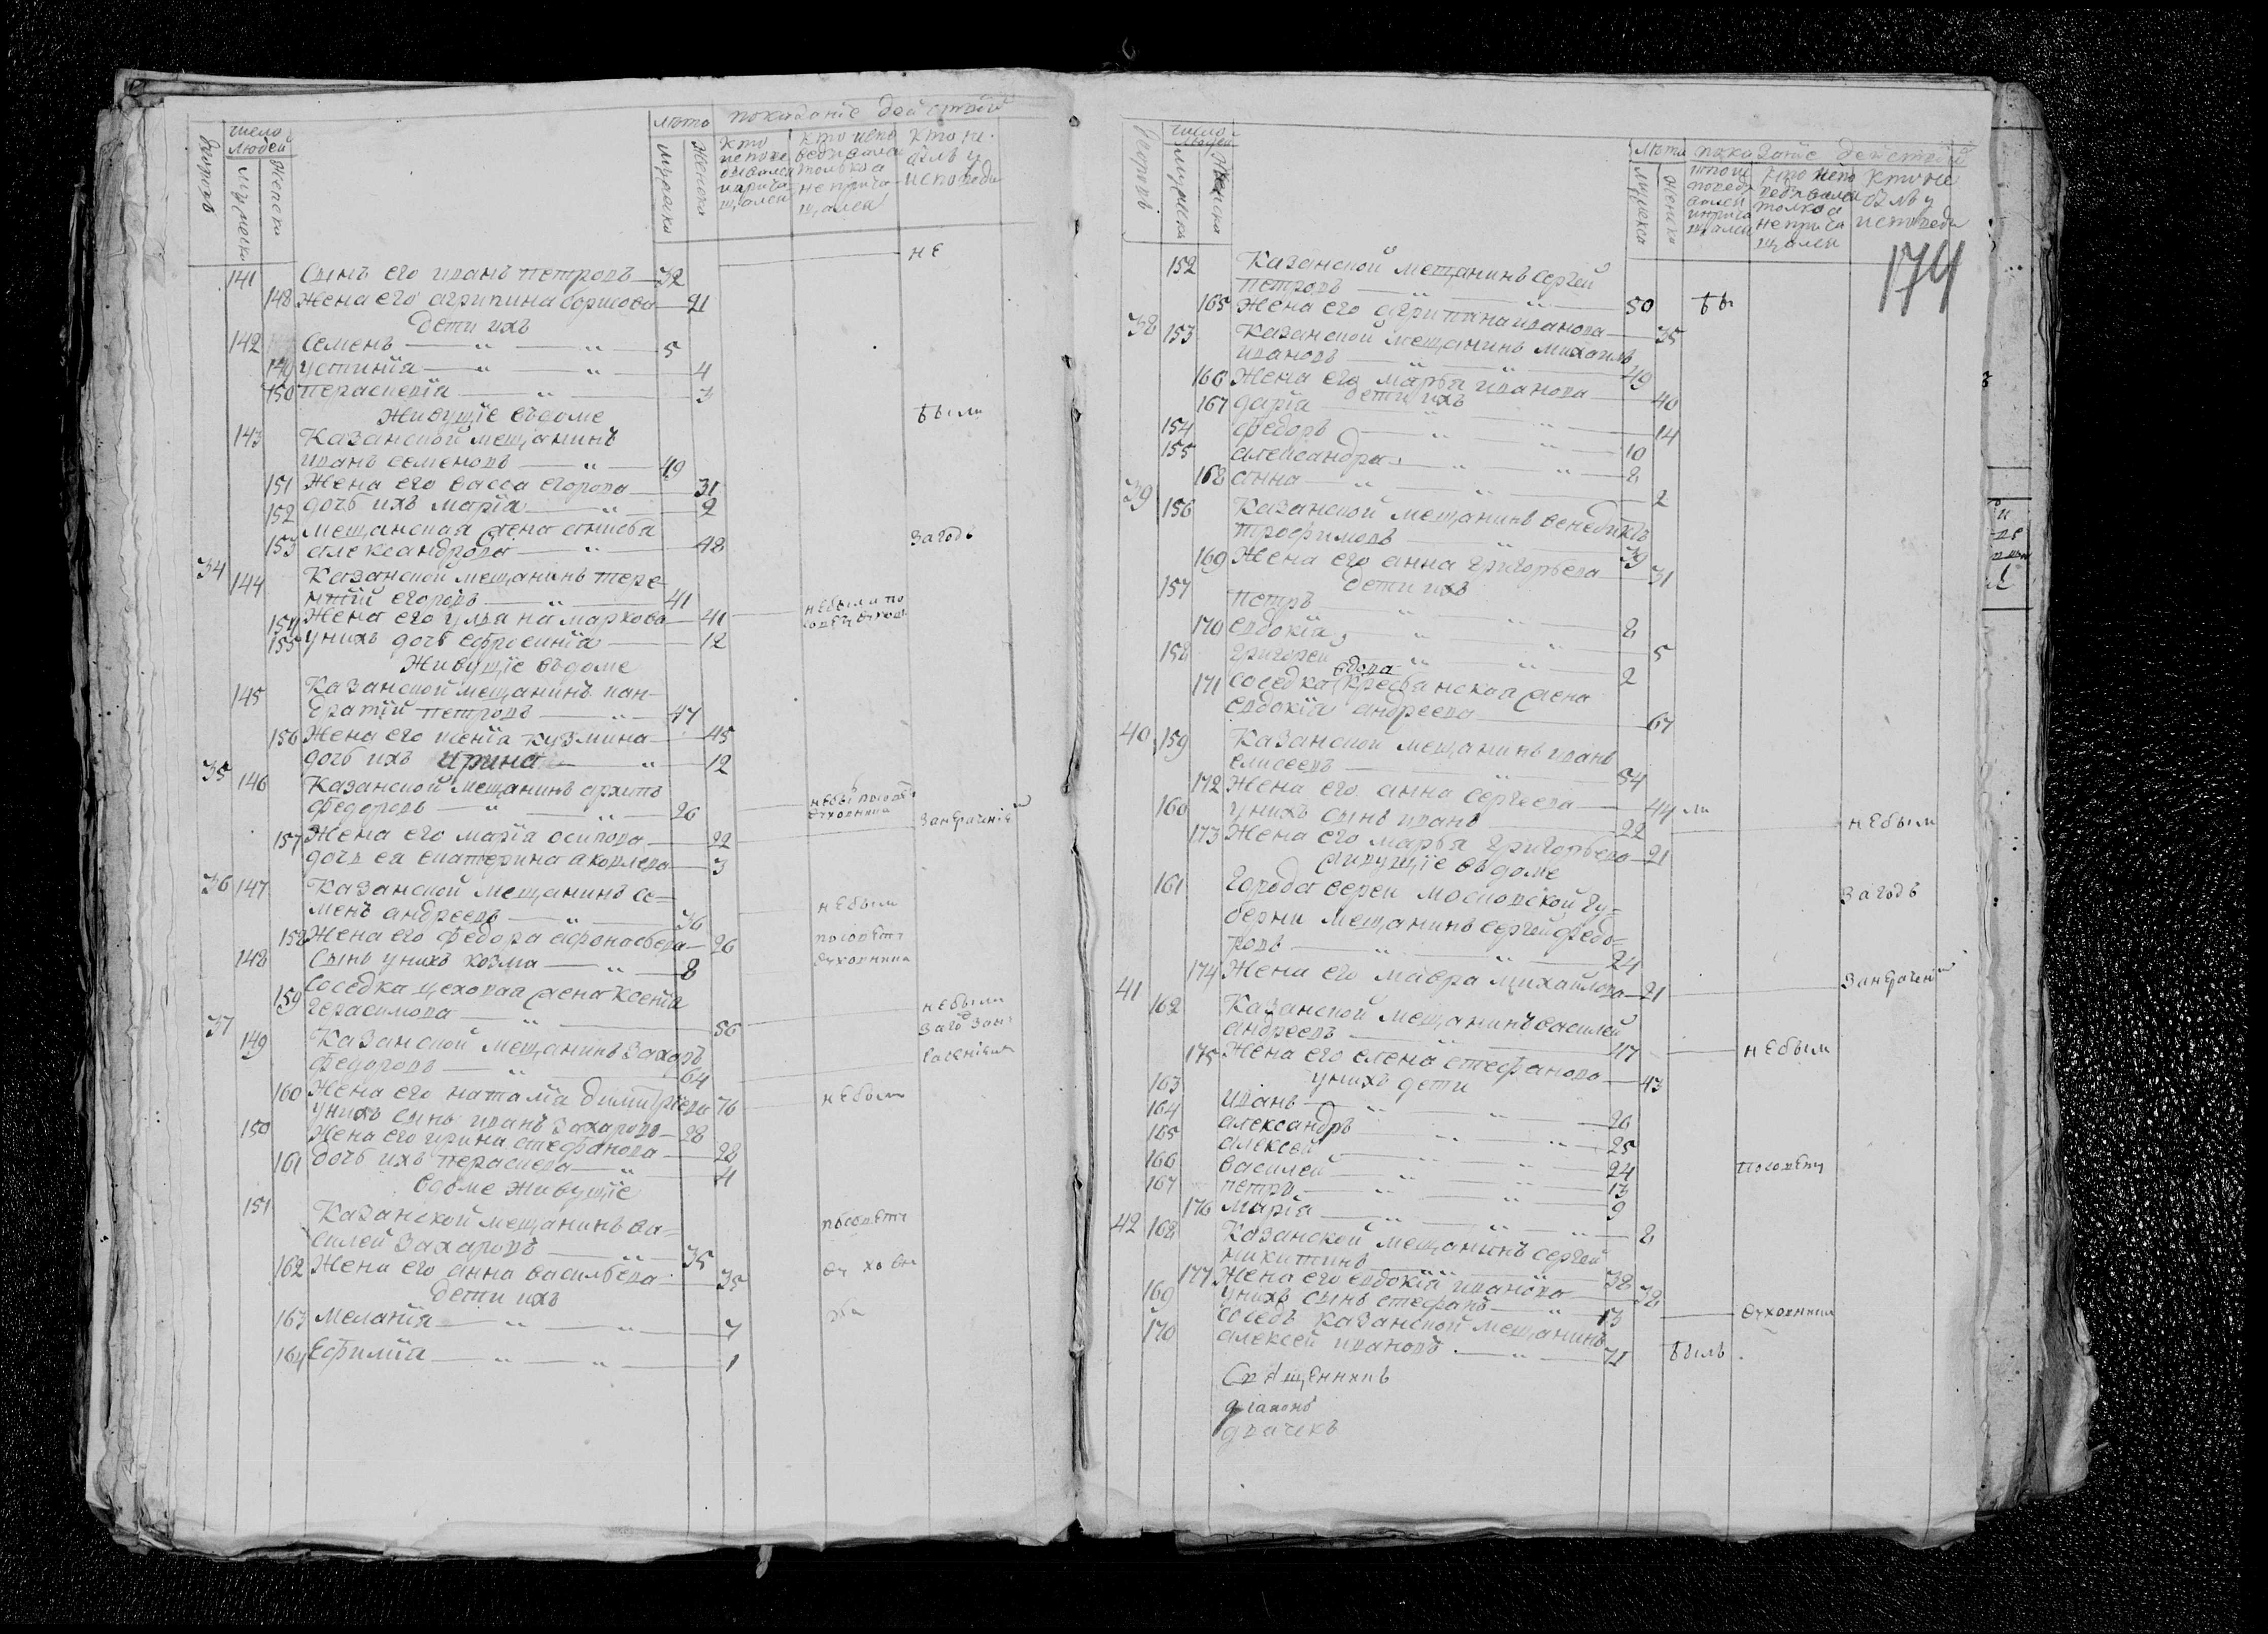 число людей лѣта показаніе действъ
дворовъ мужеска женска мужеска женска
кто исповедывался и причащался
кто исповедывался только а не причащался
кто не былъ у исповеди
141 Сынъ его иванъ петровъ — 32 не
148 Жена его агрипина борисова — 21
дети ихъ
142 Семенъ — „ — „ — 5
149 устинiя — „ — „ — 4
150 Пераскевiя — „ — 3
Живущiе въдоме были
143 Казанской мещанинъ
иванъ семеновъ — „ — 49
151 Жена его васса егорова — 31
152 дочь ихъ марiа — „ — 2
Мещанская жена анисья
153 александрова — „ — 48 загодъ
34 144 Казанской мещанинъ тере-
нтiй егоровъ — „ — 41
154 Жена его ульяна маркова — 41 небыли по
155 унихъ дочь ефросинiа — 12
Живущiе въдоме
145 Казанской мещанинъ пан-
кратiй петровъ — „ — 47
156 Жена его ксенiа кузмина — 45
дочь ихъ Ирина — „ — 12
35 146 Казанской мещанинъ архипъ
федоровъ — „ — „ — 26 небы посовѣт
духовника
157 Жена его марiя осипова — 22
дочь ея екатерина яковлева — 3
36 147 Казанской мещанинъ се-
менъ андреевъ — „ — 36 небыли
158 Жена его федора афонасьева — 26 посовѣту
148 Сынъ унихъ козма — „ — 8 духовника
Соседка цеховая жена Ксенiя
159 герасимова — „ — 56 небыли
37 149 Казанской мещанинъ Захаръ
федоровъ — „ — 64
160 Жена его наталiа димитрiева 76 небыли
унихъ сынъ иванъ захаровъ — 28
150 Жена его ирина стефанова — 28
161 дочь ихъ пераскева — „ — 4
вдоме живущiе
151 Казанской мещанинъ ва-
силей Захаровъ — „ — 35 посовѣту
162 Жена его анна васильева — 35 духовн
дети ихъ
163 Меланiя — „ — „ — 7
164 Ефимiа — „ — „ — 1
число людей лѣта показанiе действъ
дворовъ мужеска женска мужеска женска
кто исповедывался и причащался
кто исповедывался толко а не причащался
кто не былъ у исповеди
174
152 Казанской мещанинъ Сергей
петровъ — „ — „ — 50 бы
165 Жена его агрипина иванова — 35
38 153 Казанской мещанинъ михаилъ
ивановъ — „ — 49
166 Жена его марья иванова — 40
дети ихъ
167 дарiа — „ — „ — 14
154 федоръ — „ — „ — 10
155 александръ — „ — „ — 8
168 анна — „ — „ — 2
39 156 Казанской мещанинъ венедиктъ
трофимовъ — „ — 39
169 Жена его анна григорьева — 31
дети ихъ
157 петръ — „ — „ — 8
170 евдокiа — „ — „ — 5
158 григорей — „ — „ — 2
вдова
171 соседка крестьянская жена
евдокiа андреева — 67
40 159 Казанской мещанинъ иванъ
елисеевъ — 54
172 Жена его анна сергеева — 44 ли
160 унихъ сынъ иванъ — 22 небыли
173 Жена его марья григорьева — 21
живущiе въдоме
161 города вереи московской гу- загодъ
берни мещанинъ Сергей федо-
ровъ — „ — „ — 24
174 Жена его мавра михайлова — 21
41 162 Казанской мещанинъ василей
андреевъ — „ — 47 небыли
175 Жена его елена стефанова — 43
унихъ дети
163 иванъ — „ — „ — 26
164 александръ — „ — „ — 25
165 алексей — „ — „ — 24 посовѣту
166 василей — „ — „ — 13
167 петръ — „ — „ — 9
176 марiа — „ — „ — 8
42 168 Казанской мещанинъ сергей
никитинъ — 38
177 Жена его евдокiа иванова — 38
169 унихъ сынъ стефанъ — „ — 13 духовника
соседъ Казанской мещанинъ
170 алексей ивановъ — „ — 71 былъ
Священникъ
дiаконъ
дьячекъ